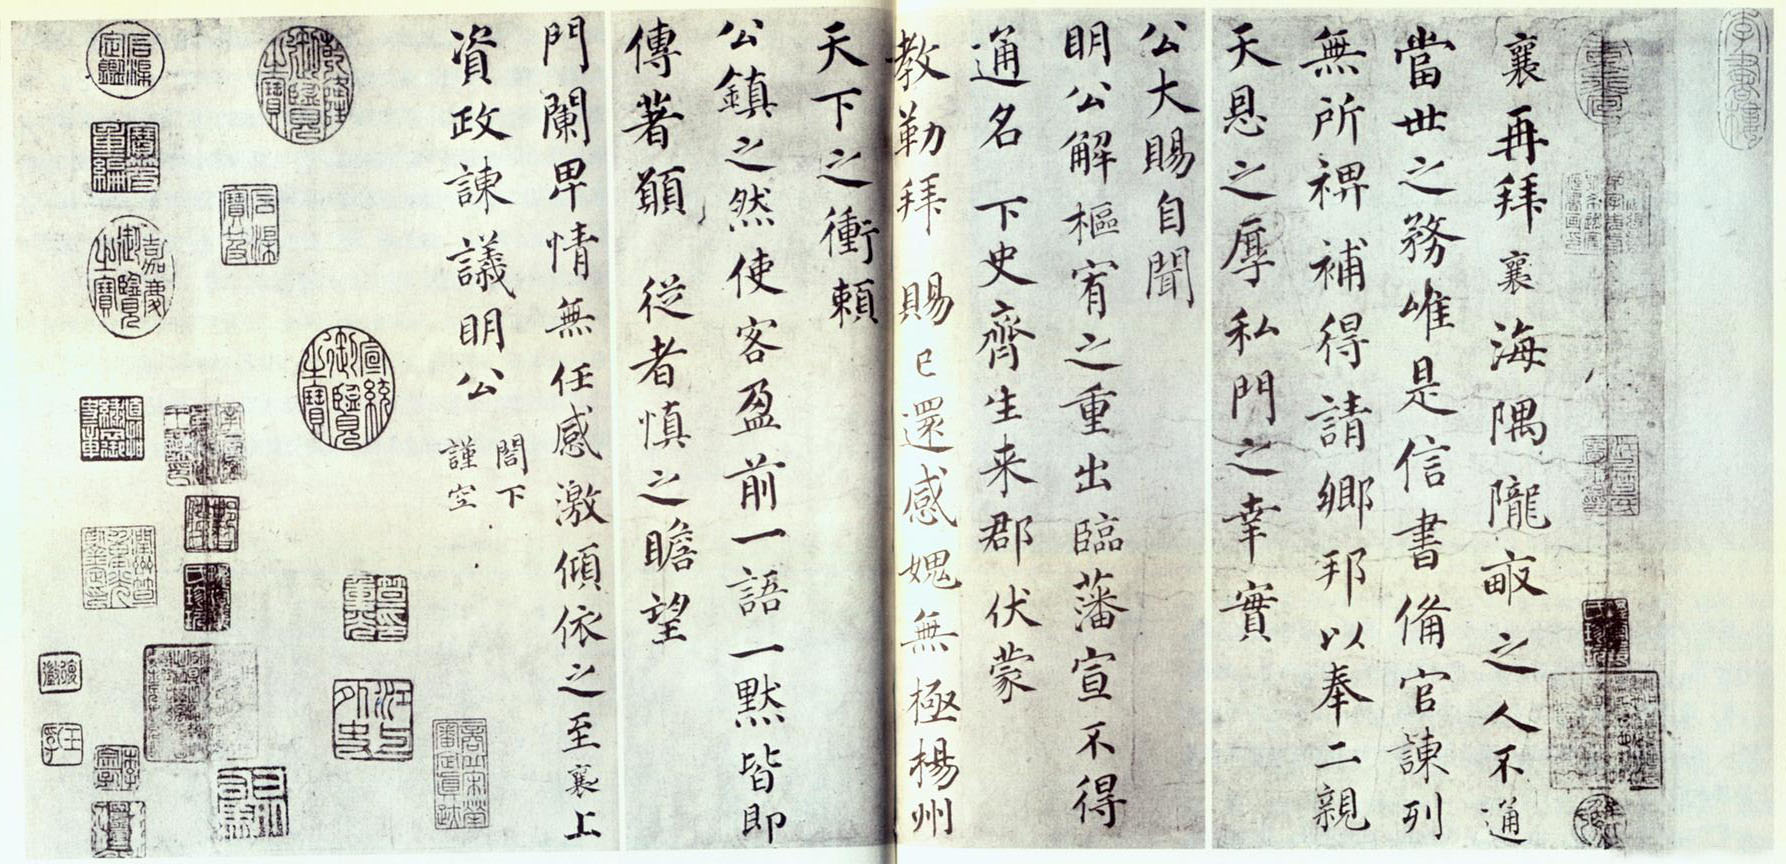 襄再拜襄海隅隴畝之人不通
當世之務唯是信書備官諫列
無所裨補得請鄉邦以奉二親
天恩之厚私門之幸實
公大賜自聞
明公解樞宥之重出臨藩宣不得
通名 下史齊生来郡伏蒙
教勒拜 賜已還感媿無極楊州
天下之衝賴
公鎮之然使客盈前一語一默皆即
傳著願 從者慎之瞻望
門闌卑情無任感激傾依之至襄上
資政諫議明公
閤下
謹空
石渠定鑑
乾隆御覽之寶
石渠寶笈
嘉慶御覽之寶
宣統御覽之寶